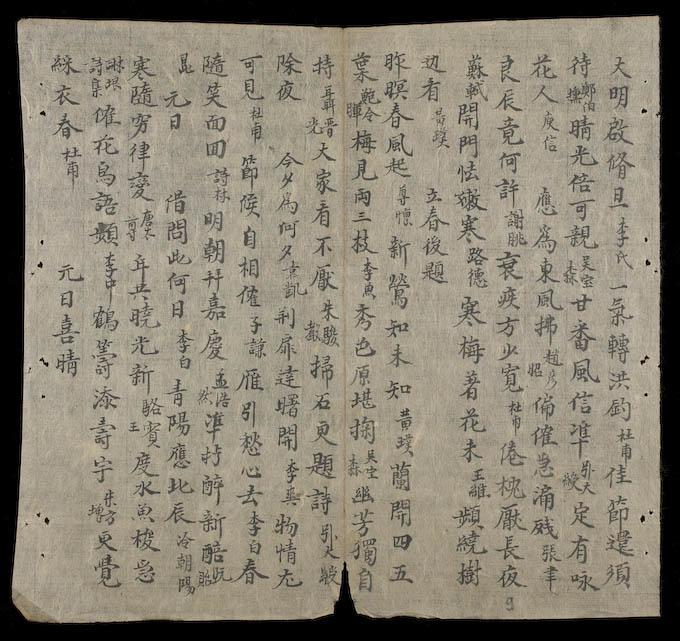 大明啟脩旦李氏一氣轉洪鈞杜甫佳節還須
待鄭伯熊晴光倍可親吳宝森廿番風信準彭大皷定有咏
花人庾信 應為東風拂趙彦昭偏催急漏殘張聿
良辰竟何許謝朓衰疾方少寬杜甫倦枕厭長夜
蘇軾開門怯嫩寒路德寒梅著花未王維頻繞樹
边看黃璞 立春後題
昨暝春風起專懷新鶯知未知黃璞蘭開四五
葉鮑令暉梅見兩三枝李魚秀色原堪掬吳宝森幽芳獨自
持聶晋光大家看不厭朱駿聲掃石更題詩彭大皷
除夜 今夕為何夕袁凱荆扉達曙開李燕物情尤
可見杜甫節候自相催子謙雁引愁心去李白春
隨笑面回詩林明朝拜嘉慶孟浩然準擬醉新醅阮貽
昆 元日 借問此何日李白青陽應北辰冷朝陽
寒隨窮律變唐太尊年共曉光新駱賓王度水魚梭急
琳琅詩集催花鳥語頻李中鶴籌添壽宇朱方增更覺
綵衣春杜甫 元日喜晴
9